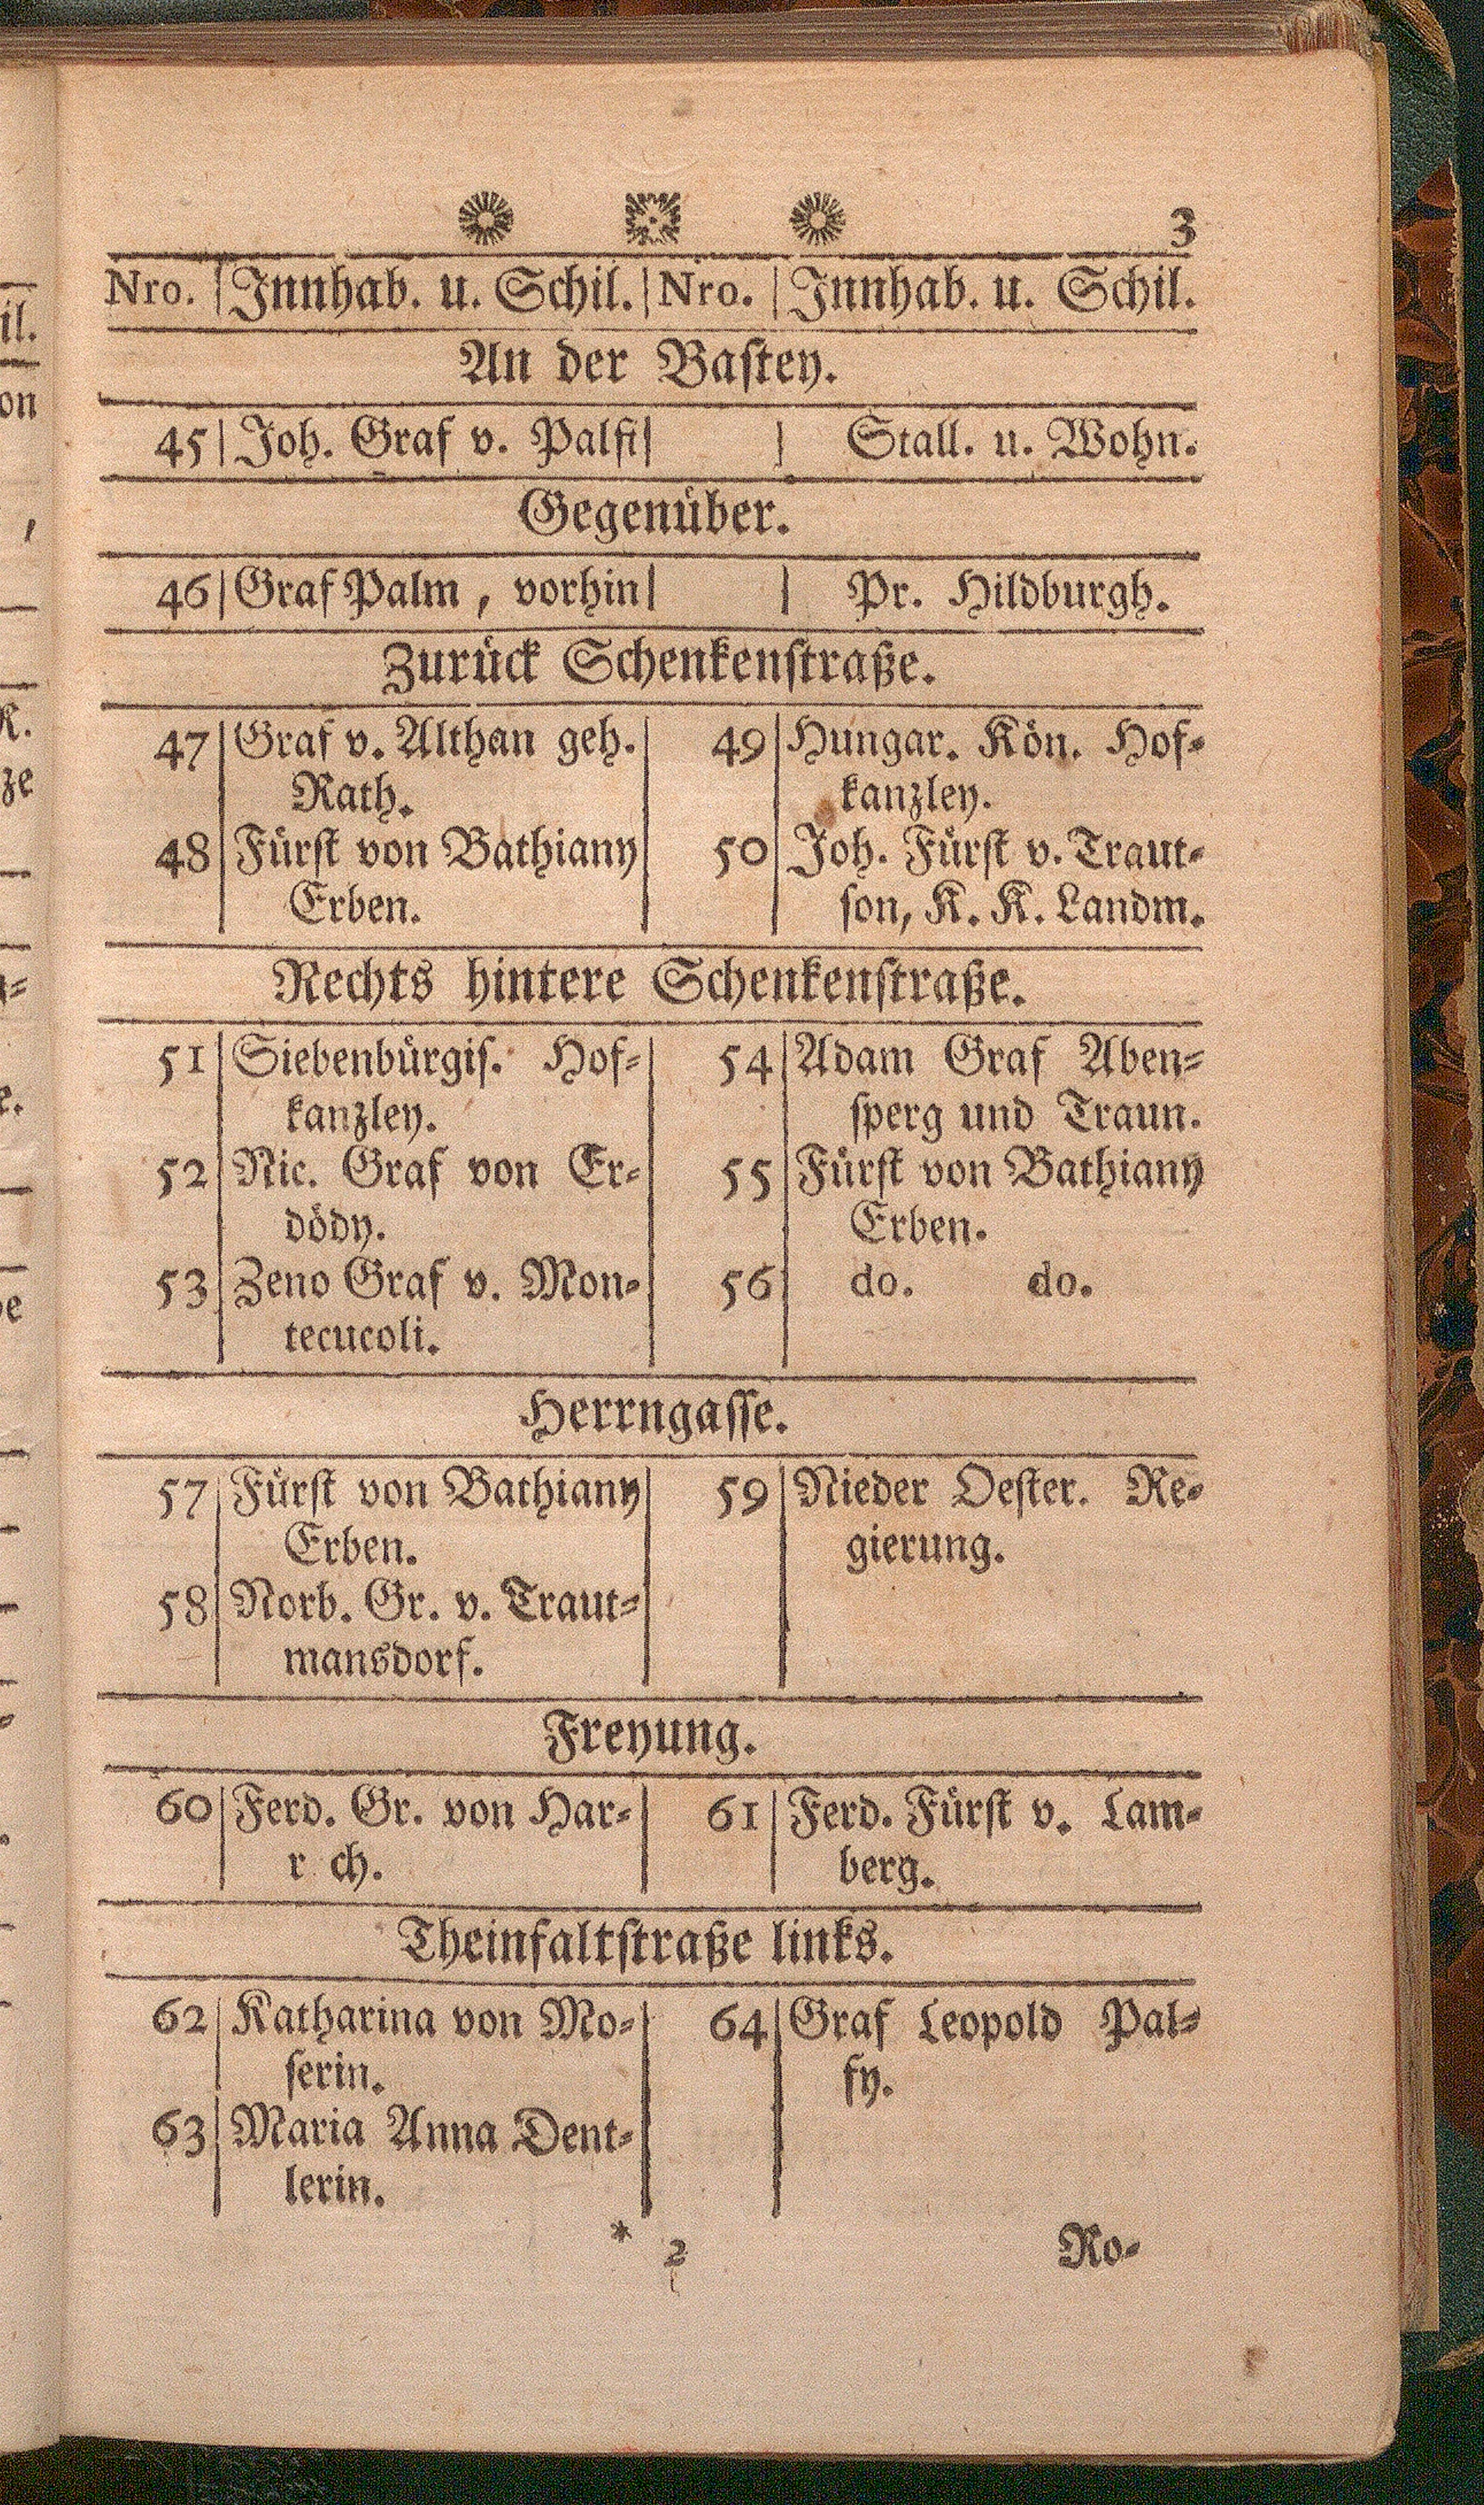 3
Nro. Innhab. u. Schil. Nro. Innhab. u. Schil.
An der Bastey.
45 Joh. Graf v. Palfi Stall. u. Wohn.
Gegenüber.
46 Graf Palm, vorhin Pr. Hildburgh.
Zurück Schenkenstraße.
47 Graf v. Althan geh.
Rath.
48 Fürst von Bathiany
Erben.
49 Hungar. Kön. Hof-
kanzley.
50 Joh. Fürst v. Traut-
son, K. K. Landm.
Rechts hintere Schenkenstraße.
51 Siebenbürgis. Hof-
kanzley.
52 Nic. Graf von Er-
dödy.
53 Zeno Graf v. Mon-
tecucoli.
54 Adam Graf Aben-
sperg und Traun.
55 Fürst von Bathiany
Erben.
56 do. do.
Herrngasse.
57 Fürst von Bathiany
Erben.
58 Norb. Gr. v. Traut-
mansdorf.
59 Nieder Oester. Re-
gierung.
Freyung.
60 Ferd. Gr. von Har-
r ch.
61 Ferd. Fürst v. Lam-
berg.
Theinfaltstraße links.
62 Katharina von Mo-
serin.
63 Maria Anna Dent-
lerin.
64 Graf Leopold Pal-
fy.
* 2 Ro-